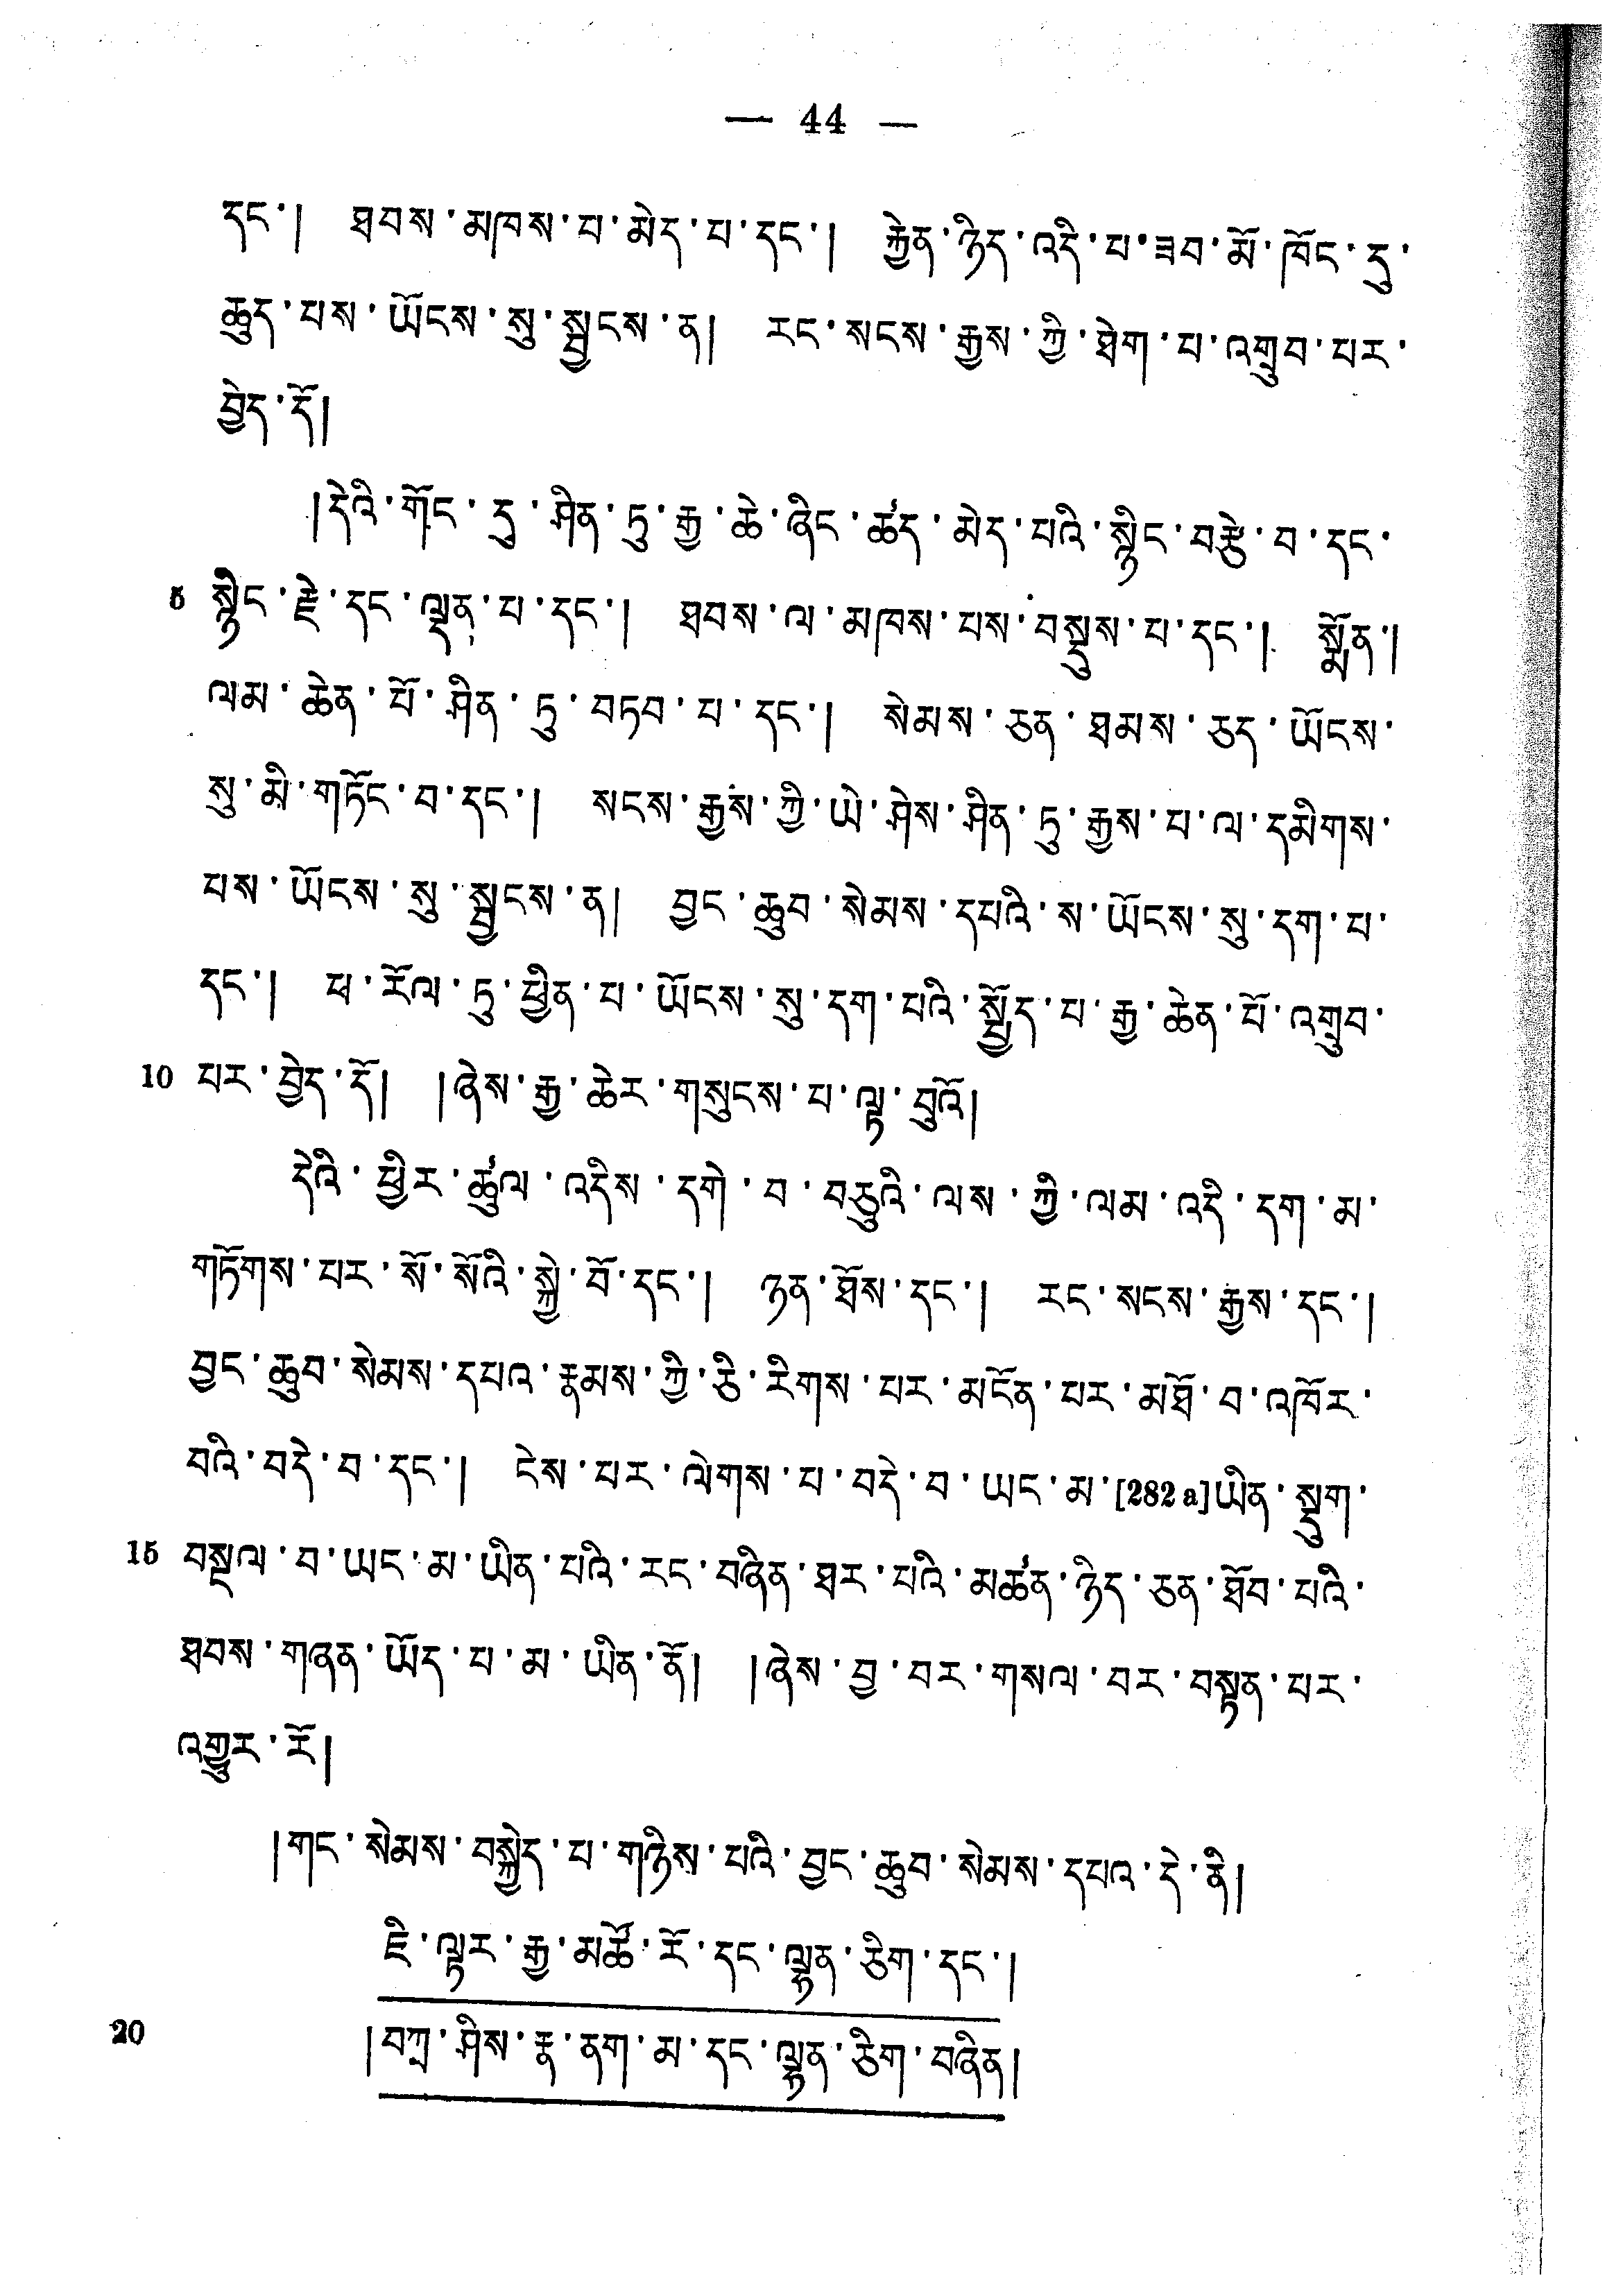 — 44 —
དང་། ཐབས་མཁས་པ་མེད་པ་དང་། རྐྱེན་ཉིད་འདི་པ་ཟབ་མོ་ཁོང་དུ་
ཆུད་པས་ཡོངས་སུ་སྦྱངས་ན། རང་སངས་རྒྱས་ཀྱི་ཐེག་པ་འགྲུབ་པར་
བྱེད་དོ།
།དེའི་གོང་དུ་ཤིན་ཏུ་རྒྱ་ཆེ་ཞིང་ཚད་མེད་པའི་སྙིང་བརྩེ་བ་དང་
5 སྙིང་རྗེ་དང་ལྡན་པ་དང་། ཐབས་ལ་མཁས་པས་བསྡུས་པ་དང་། སྨོན་།
ལམ་ཆེན་པོ་ཤིན་ཏུ་བཏབ་པ་དང་། སེམས་ཅན་ཐམས་ཅད་ཡོངས་
སུ་མི་གཏོང་བ་དང་། སངས་རྒྱས་ཀྱི་ཡེ་ཤེས་ཤིན་ཏུ་རྒྱས་པ་ལ་དམིགས་
པས་ཡོངས་སུ་སྦྱངས་ན། བྱང་ཆུབ་སེམས་དཔའི་ས་ཡོངས་སུ་དག་པ་
དང་། ཕ་རོལ་ཏུ་ཕྱིན་པ་ཡོངས་སུ་དག་པའི་སྤྱོད་པ་རྒྱ་ཆེན་པོ་འགྲུབ་
10 པར་བྱེད་དོ། །ཞེས་རྒྱ་ཆེར་གསུངས་པ་ལྟ་བུའོ།
དེའི་ཕྱིར་ཚུལ་འདིས་དགེ་བ་བཅུའི་ལས་ཀྱི་ལམ་འདི་དག་མ་
གཏོགས་པར་སོ་སོའི་སྐྱེ་བོ་དང་། ཉན་ཐོས་དང་། རང་སངས་རྒྱས་དང་།
བྱང་ཆུབ་སེམས་དཔའ་རྣམས་ཀྱི་ཅི་རིགས་པར་མངོན་པར་མཐོ་བ་འཁོར་
བའི་བདེ་བ་དང་། ངེས་པར་ལེགས་པ་བདེ་བ་ཡང་མ་[282 a]ཡིན་སྡུག་
15 བསྔལ་བ་ཡང་མ་ཡིན་པའི་རང་བཞིན་ཐར་པའི་མཚན་ཉིད་ཅན་ཐོབ་པའི་
ཐབས་གཞན་ཡོད་པ་མ་ཡིན་ནོ། །ཞེས་བྱ་བར་གསལ་བར་བསྟན་པར་
འགྱུར་རོ།
།གང་སེམས་བསྐྱེད་པ་གཉིས་པའི་བྱང་ཆུབ་སེམས་དཔའ་དེ་ནི།
ཇི་ལྟར་རྒྱ་མཚོ་རོ་དང་ལྷན་ཅིག་དང་།
20 །བཀྲ་ཤིས་རྣ་ནག་མ་དང་ལྷན་ཅིག་བཞིན།